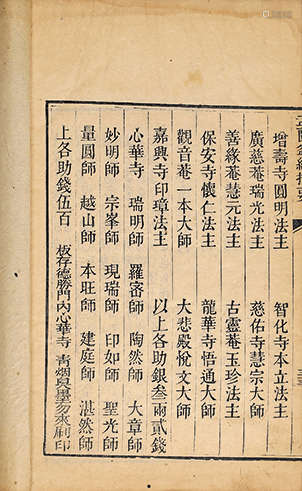 增壽寺圓明法主 智化寺本立法主
廣慈菴瑞光法主 慈佑寺慧宗大師
善緣菴慧元法主 古靈菴玉珍法主
保安寺懷仁法主 龍華寺悟通大師
觀音菴一本大師 大悲殿悅文大師
嘉興寺印璋法主 以上各助銀叁兩貳錢
心華寺 瑞明師 羅密師 陶然師 大章師
妙明師 宗峯師 現瑞師 印如師 聖光師
量圓師 越山師 本旺師 建庭師 湛然師
上各助錢伍百 板存德勝門內心華寺 青烟臭墨勿來刷印